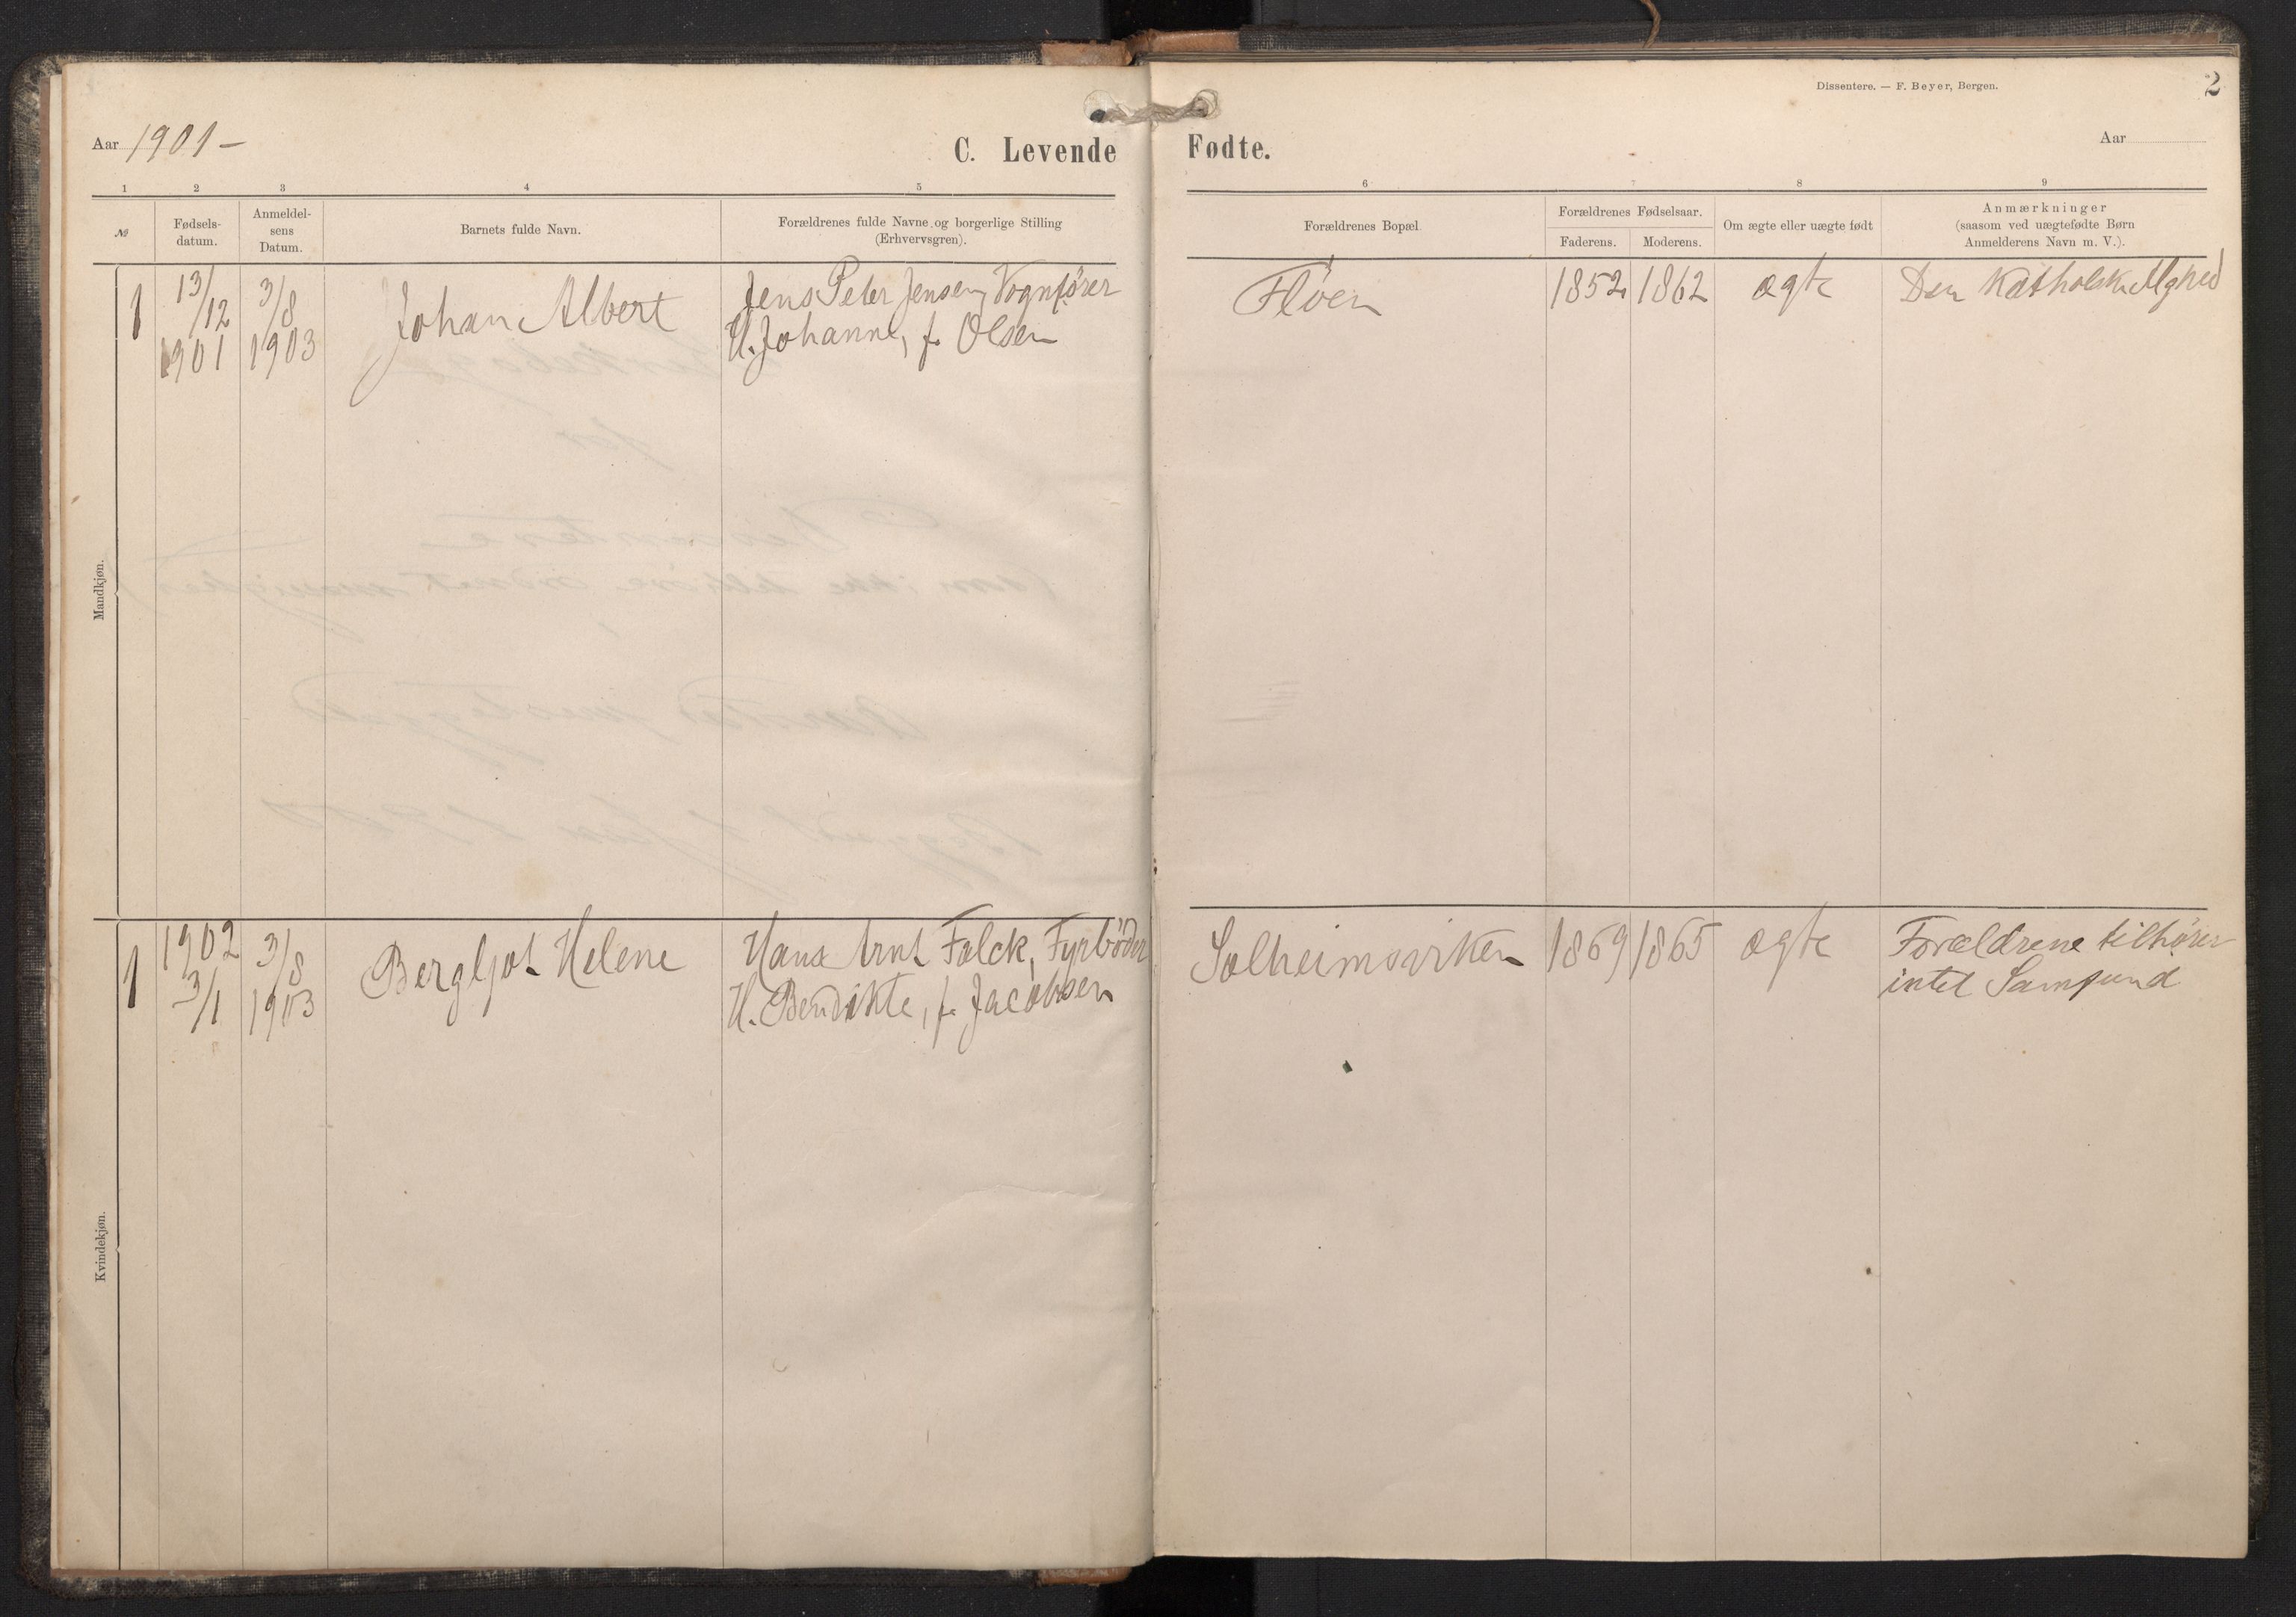 Dissentere. — F. Beyer, Bergen.
2
Aar 1901 –
C. Levende Fødte.
Aar
1 2 3 4 5 6 7 8 9
№
Fødsels-
datum.
Anmeldel-
sens
Datum.
Barnets fulde Navn.
Forældrenes fulde Navne og borgerlige Stilling
(Erhvervsgren).
Forældrenes Bopæl.
Forældrenes Fødselsaar.
Faderens. Moderens.
Om ægte eller uægte født
Anmærkninger
(saasom ved uægtefødte Børn
Anmelderens Navn m. V.).
Mandkjøn.
1
13/12
1901
3/8
1903
Johan Albert
Jens Peter Jensen, Vognfører
H. Johanne, f. Olsen
Fløen
1852 1862
ægte
Den Katholske Mghed
Kvindekjøn.
1
1902
3/1
3/8
1903
Bergljot Helene
Hans Arnt Falck, Fyrbøder
H. Bendikte, f. Jacobsen
Solheimsviken
1869 1865
ægte
Forældrene tilhører
intet Samfund